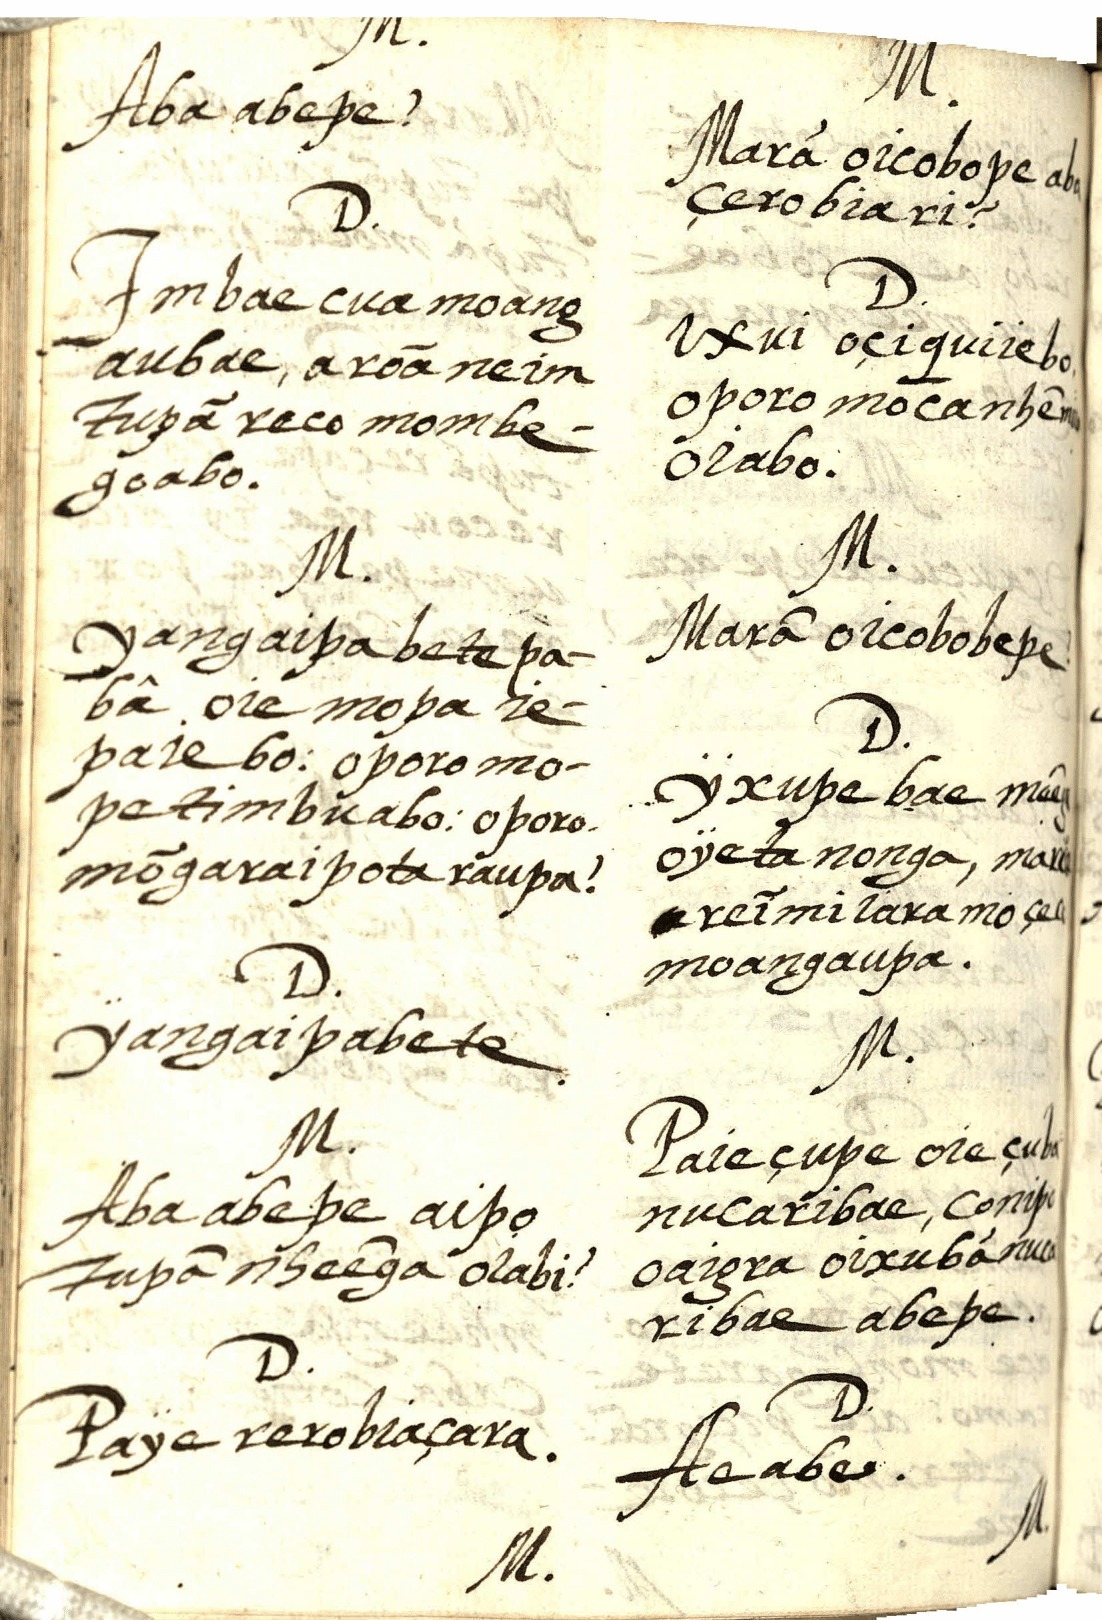 M.
Aba abepe?
D.
Imbae cua moang
aubae, aroã neim
tupã reco mombe-
goabo.
M.
yangaipabete pa-
bâ oie mopa ie-
paie bo: oporo mo-
petimbuabo: oporo-
mõgaraipota raupa?
D.
ÿangaipabete.
M.
Aba abepe aipo
tupã nheẽga olabi?
D.
Paÿe rerobiaçara.
M.
M.
Mará oicobope aba
çerobiari?
D.
Ixui oçiquiiebo,
oporo mõcanhẽ
oiabo.
M.
Marã oicobobepe?
D.
Ÿxupe bae
oÿeta nonga,
reĩmi iara mo
moangaupa.
M.
Paie çupe oie çuba
nucaribae, conipo
oaigra oixubá nuca
ribae abepe.
D.
Ae abe.
M.